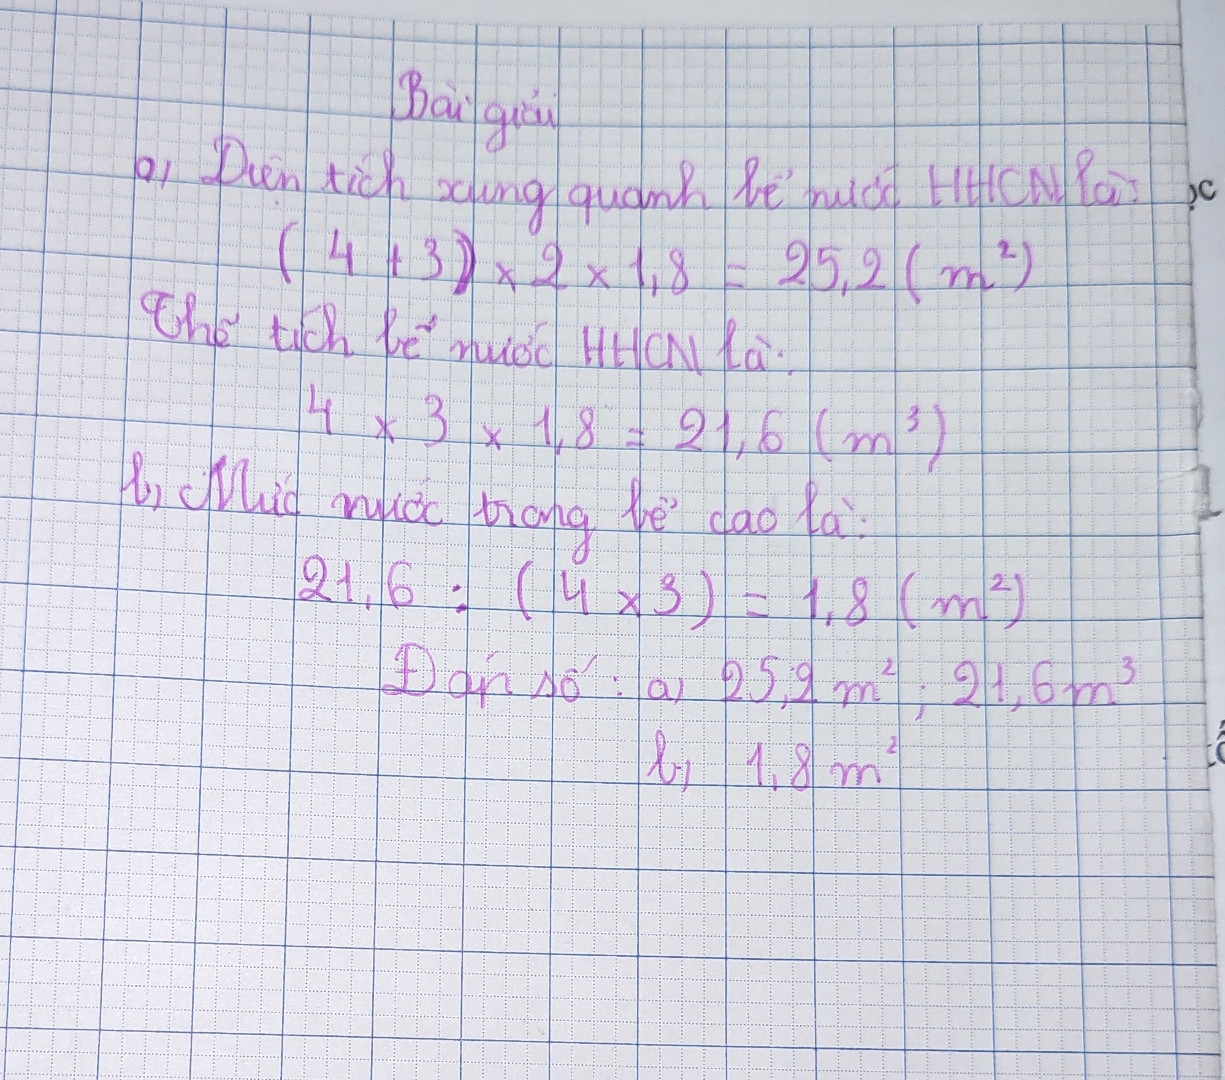 Bài giải
a, Diện tích xung quanh bể nước HHCN là:
( 4 + 3 ) x 2 x 1,8 = 25,2 ( m² )
Thể tích bể nước HHCN là:
4 x 3 x 1,8 = 21,6 ( m³ )
b, Mức nước trong bể cao là:
21,6 : ( 4 x 3 ) = 1,8 ( m² )
Đáp số : a, 25,2 m² ; 21,6 m³
b, 1,8 m²